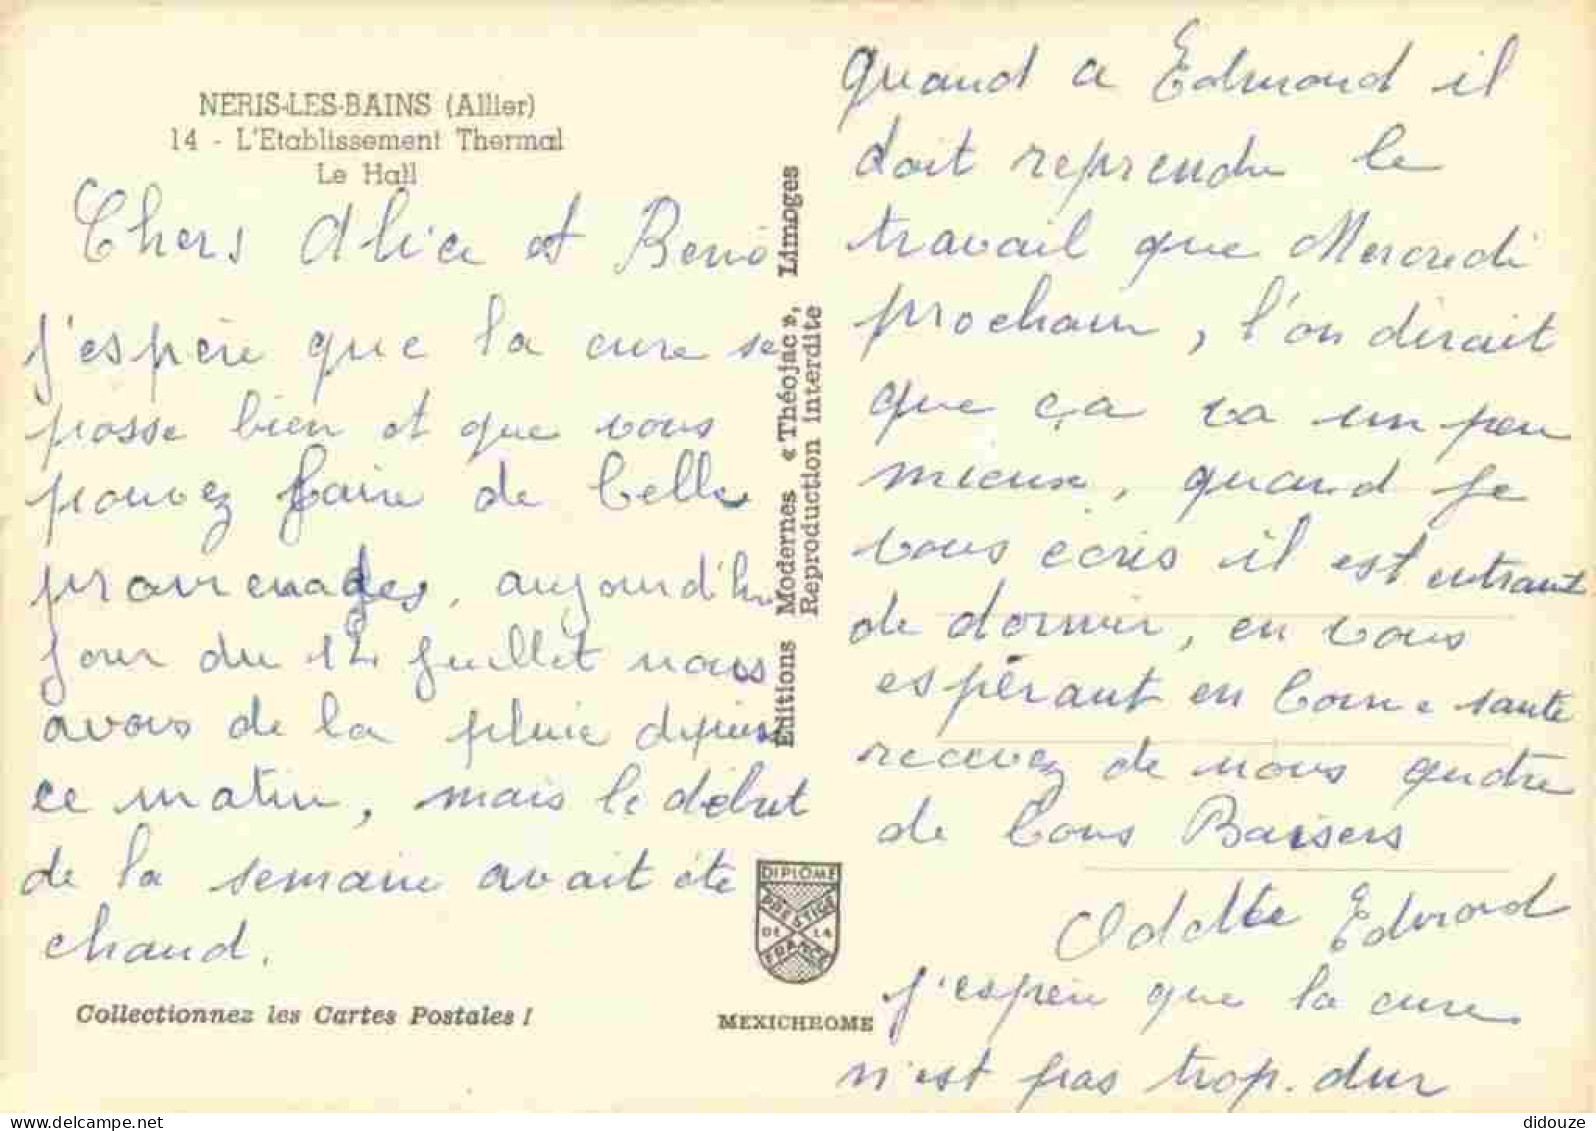 NERIS-LES-BAINS (Allier)
14 - L'Etablissement Thermal
Le Hall
Chers Alice et René
j'espère que la cure se
passe bien et que vous
pouvez faire de belle
promenades, aujourd'hui
jour du 14 juillet nous
avons de la pluie depuis
ce matin, mais le début
de la semaine avait été
chaud.
Collectionnez les Cartes Postales !
Editions Modernes « Théojac », Limoges
Reproduction interdite
DIPLOME
PRESTIGE
DE LA
FRANCE
MEXICHROME
quand a Edmond il
doit reprendre le
travail que Mercredi
prochain, l'on dirait
que ça va un peu
mieux, quand je
vous écris il est entraint
de dormir, en vous
espérant en bonne sante
recevez de nous quatre
de bons Baisers
Odette Edmond
j'espère que la cure
n'est pas trop dur
didouze